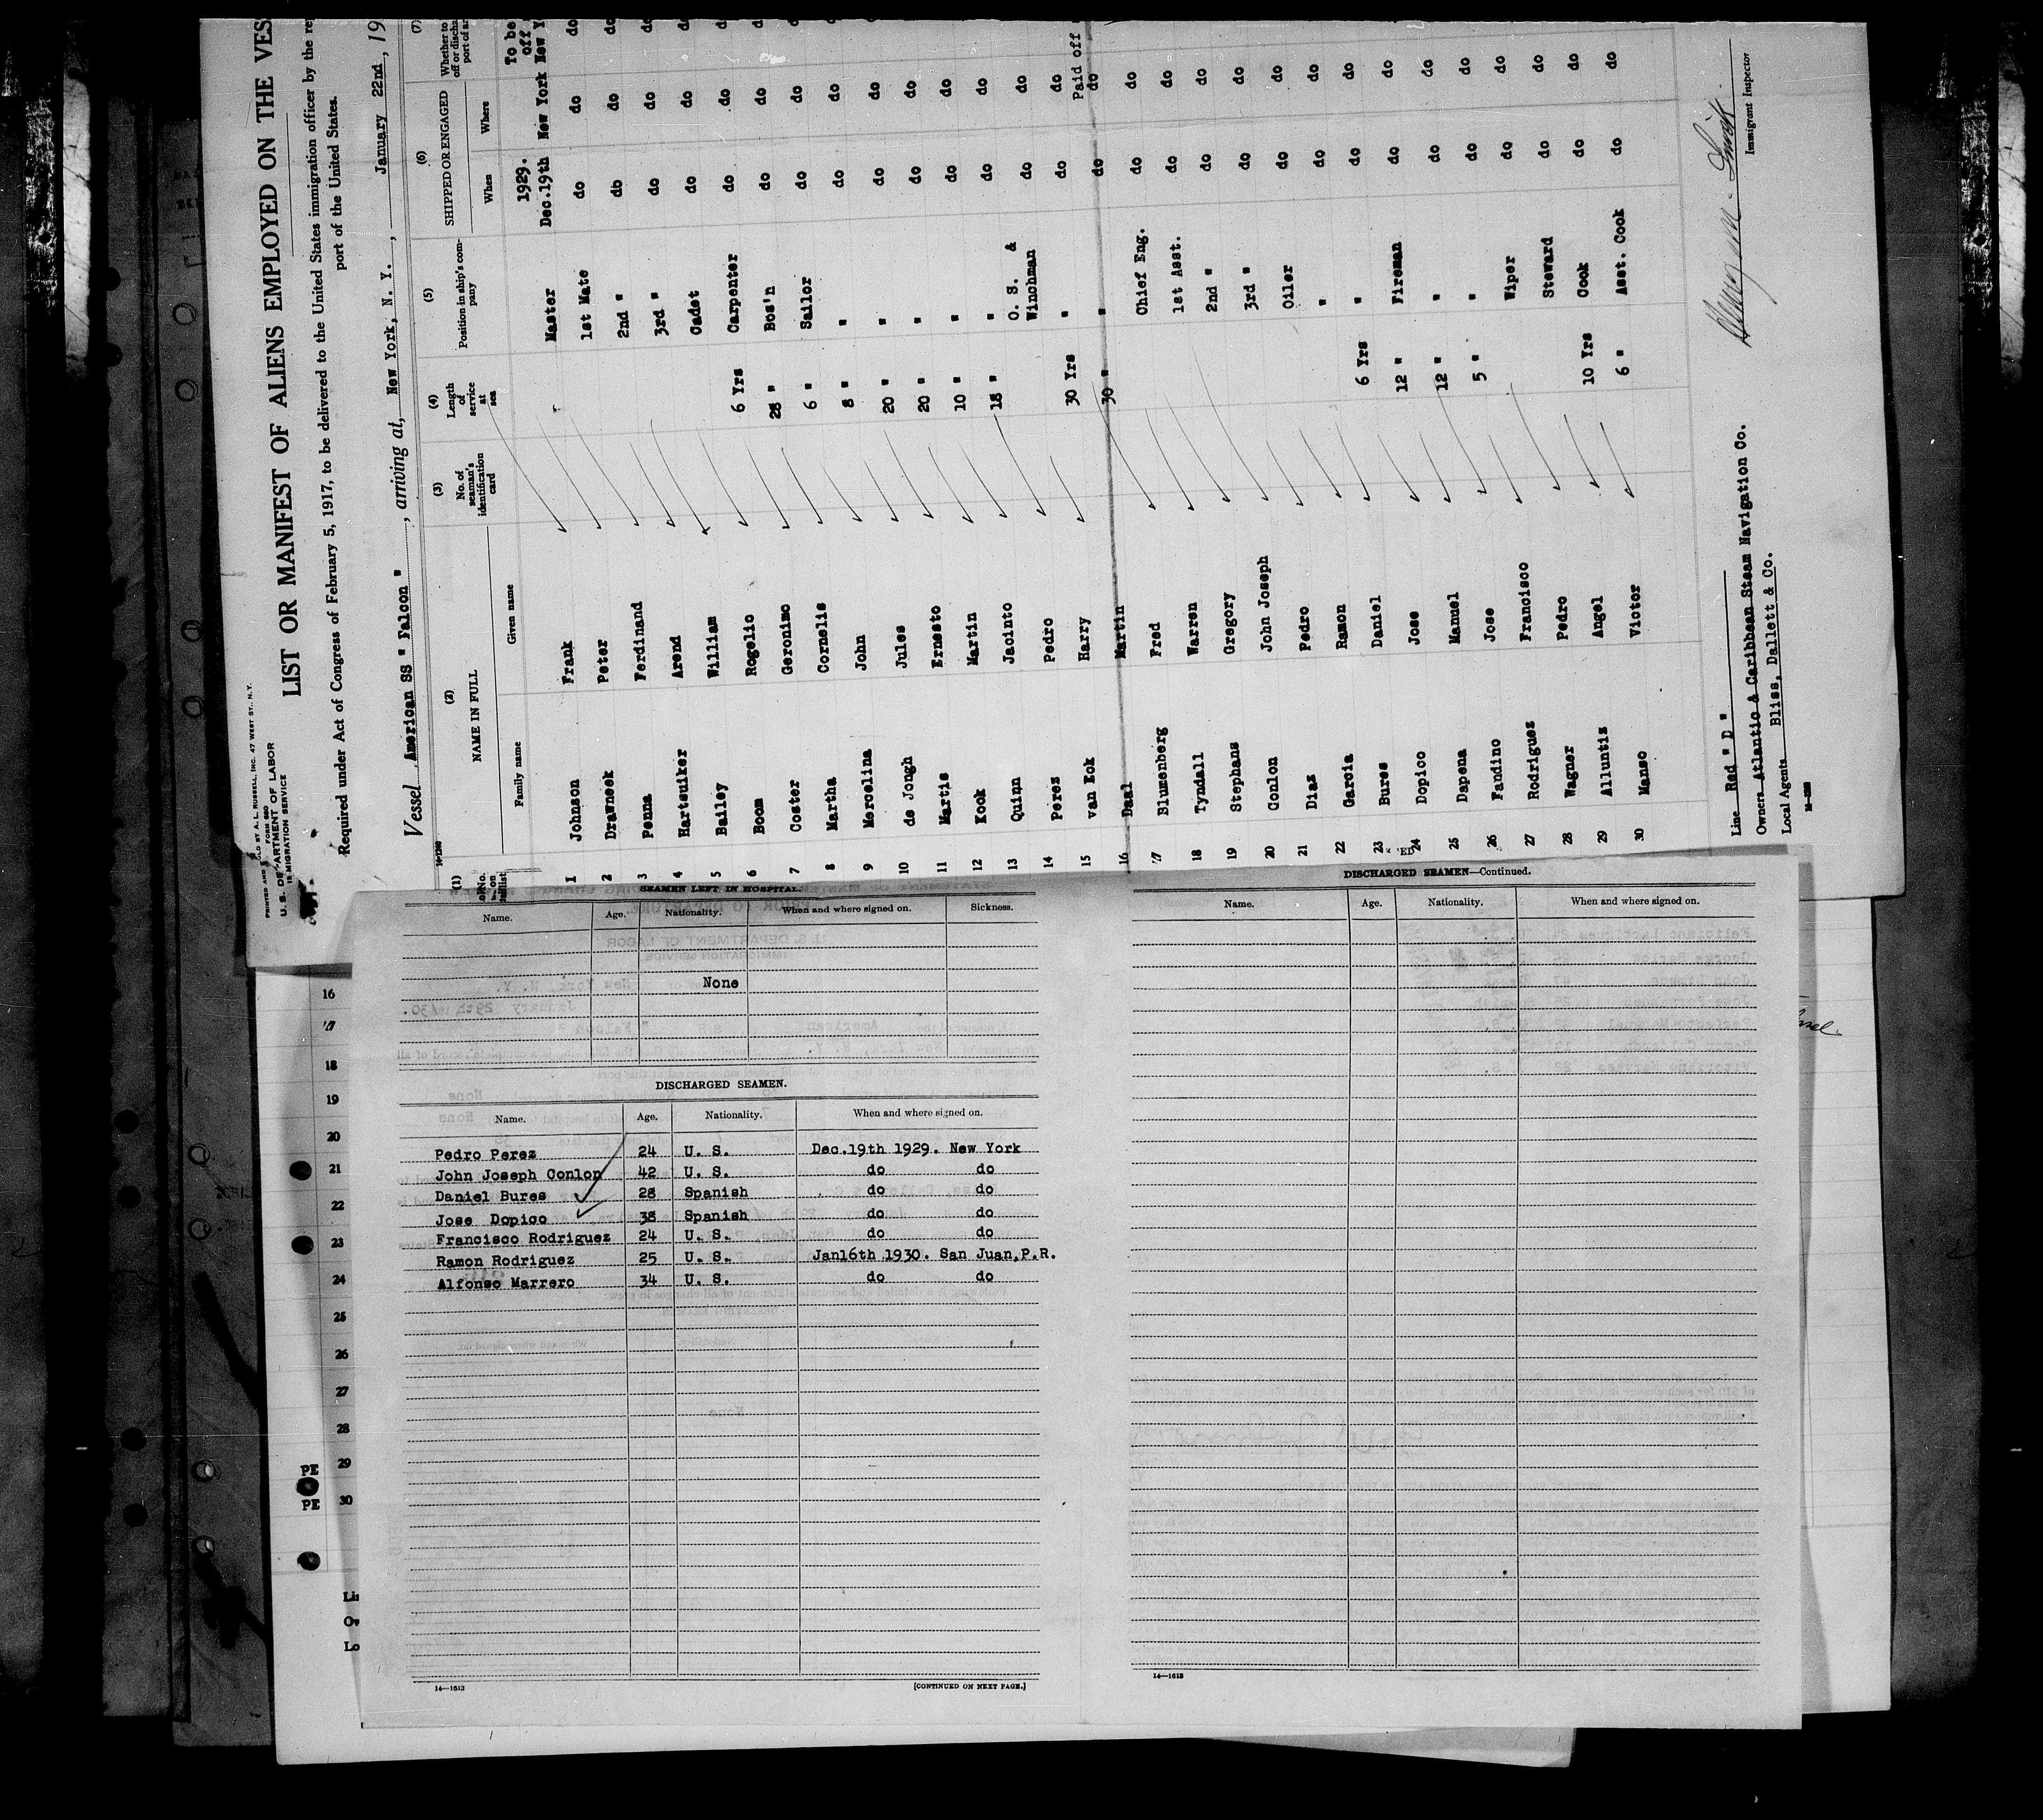 PRINTED AND SOLD BY A. L. RUSSELL, INC. 47 WEST ST., N. Y.
FORM 680
U. S. DEPARTMENT OF LABOR
IMMIGRATION SERVICE
LIST OR MANIFEST OF ALIENS EMPLOYED ON THE VES
Required under Act of Congress of February 5, 1917, to be delivered to the United States immigration officer by the re
port of the United States.
Vessel American SS " Falcon " , arriving at, New York, N. Y. , January 22nd , 19
(1) (2) (3) (4) (5) (6) (7)
No. on list NAME IN FULL No. of seaman's identification card Length of service at sea Position in ship's company SHIPPED OR ENGAGED Whether to
off or discha
port of ar
Family name Given name When Where
1929. To be
off
1 Johnson Frank Master Dec.19th New York New Y
2 Drawneek Peter 1st Mate do do do
3 Penna Ferdinand 2nd " do do do
4 Hartsuiker Arend 3rd " do do do
5 Bailey William Cadet do do do
6 Boom Rogelio 6 Yrs Carpenter do do do
7 Coster Geronimo 28 " Bos'n do do do
8 Martha Cornelis 6 " Sailor do do
9 Mercelina John 8 " " do do do
10 de Jough Jules 20 " " do do do
11 Martis Ernesto 20 " " do do do
12 Kook Martin 10 " " do do do
13 Quinn Jacinto 18 " " do do do
14 Perez Pedro O. S. & Winchman do do do
15 van Eok Harry 30 Yrs " do do Paid off
16 Daal Martin 30 " " do do
17 Blumenberg Fred Chief Eng. do do do
18 Tyndall Warren 1st Asst. do do do
19 Stephans Gregory 2nd " do do do
20 Conlon John Joseph 3rd " do do do
21 Diaz Pedro Oiler do do do
22 Garcia Ramon " do do do
23 Bures Daniel 6 Yrs " do do do
24 Dopico Jose 12 " Fireman do do do
25 Dapena Manuel 12 " " do do do
26 Fandino Jose 5 " " do do do
27 Rodriguez Francisco Wiper do do do
28 Wagner Pedro Steward do do do
29 Alluntiz Angel 10 Yrs Cook do do do
30 Manso Victor 6 " Asst. Cook do do do
Line Red " D "
Owners Atlantic & Caribbean Steam Navigation Co.
Local Agents Bliss, Dallett & Co.
Immigrant Inspector
SEAMEN LEFT IN HOSPITAL.
Name. Age. Nationality. When and where signed on. Sickness.
None
DISCHARGED SEAMEN.
Name. Age. Nationality. When and where signed on.
Pedro Perez 24 U. S. Dec.19th 1929. New York
John Joseph Conlon 42 U. S. do do
Daniel Bures 28 Spanish do do
Jose Dopico 38 Spanish do do
Francisco Rodriguez 24 U. S. do do
Ramon Rodriguez 25 U. S. Jan16th 1930. San Juan,P.R.
Alfonso Marrero 34 U. S. do do
14—1613
[CONTINUED ON NEXT PAGE.]
DISCHARGED SEAMEN—Continued.
Name. Age. Nationality. When and where signed on.
14—1613
16
17
18
19
20
21
22
23
24
25
26
27
28
29
30
PE
PE
Li
Ow
Lo